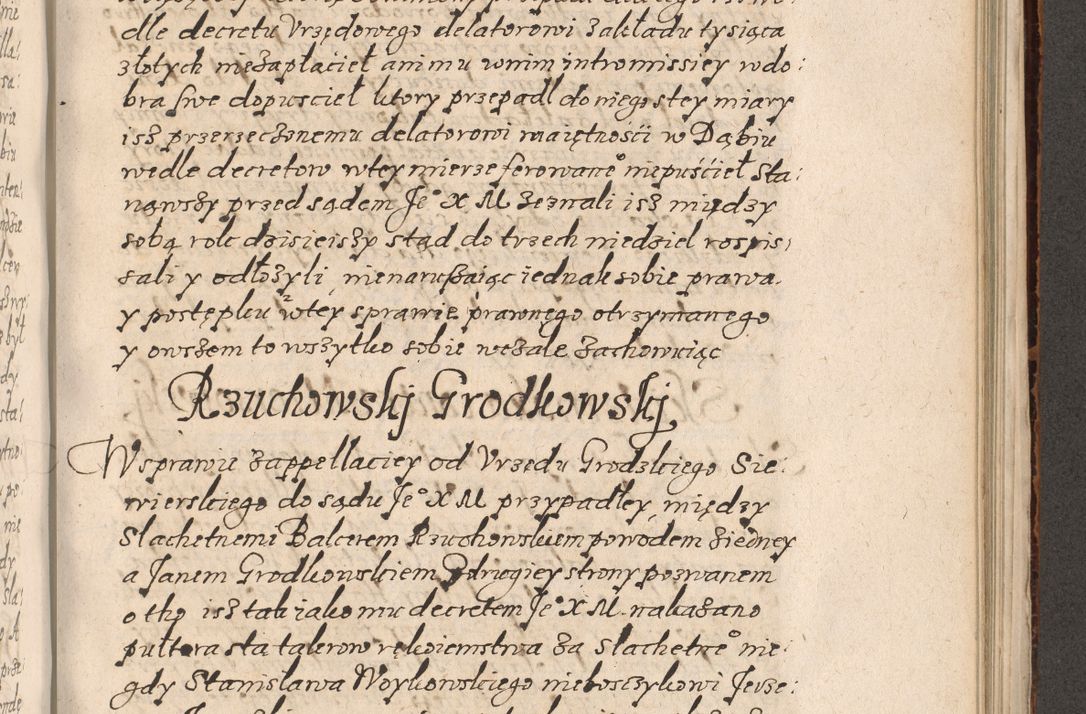 dle decretu Vrzędowego delatorowi zakładu tysiąca
złotych niezapłacieł ani mu wnim intromissiey wdo:
bra swe dopuscieł ktory przepadł do niego stey miary
isz przerzeczonemu delatorowi maiętności w Dąbiu
wedle decretow wtey mierze ferowane° niepuścieł Sta:
nąwszy przed sądem Je° X M zeznali isz między
sobą rolc dzisieiszy stąd do trzech niedziel rospis,
sali y odłożyli, nienarußaiąc iednak sobie prawa.
y postępku wtey sprawie prawnego otrzymanego
y owszem to wszytko sobie wcale zachowuiąc
Rzuchowskj Grodkowskj
Wsprawie zappellaciey od Vrzędu Grodzkiego Sie:
wierskiego do sądu Je° X M przypadłey, między
Slachetnemi Balcerem Rzuchowskiem powodem ziedney
a Janem Grodkowskiem zdrugiey strony pozwanem
o tho isz tak iako mu decretem Je° X M. nakazano
pułtora sta talerow rękoiemstwa za slachetne° nie:
gdy Stanislawa Woykowskiego nieboszczykowi Jerze: